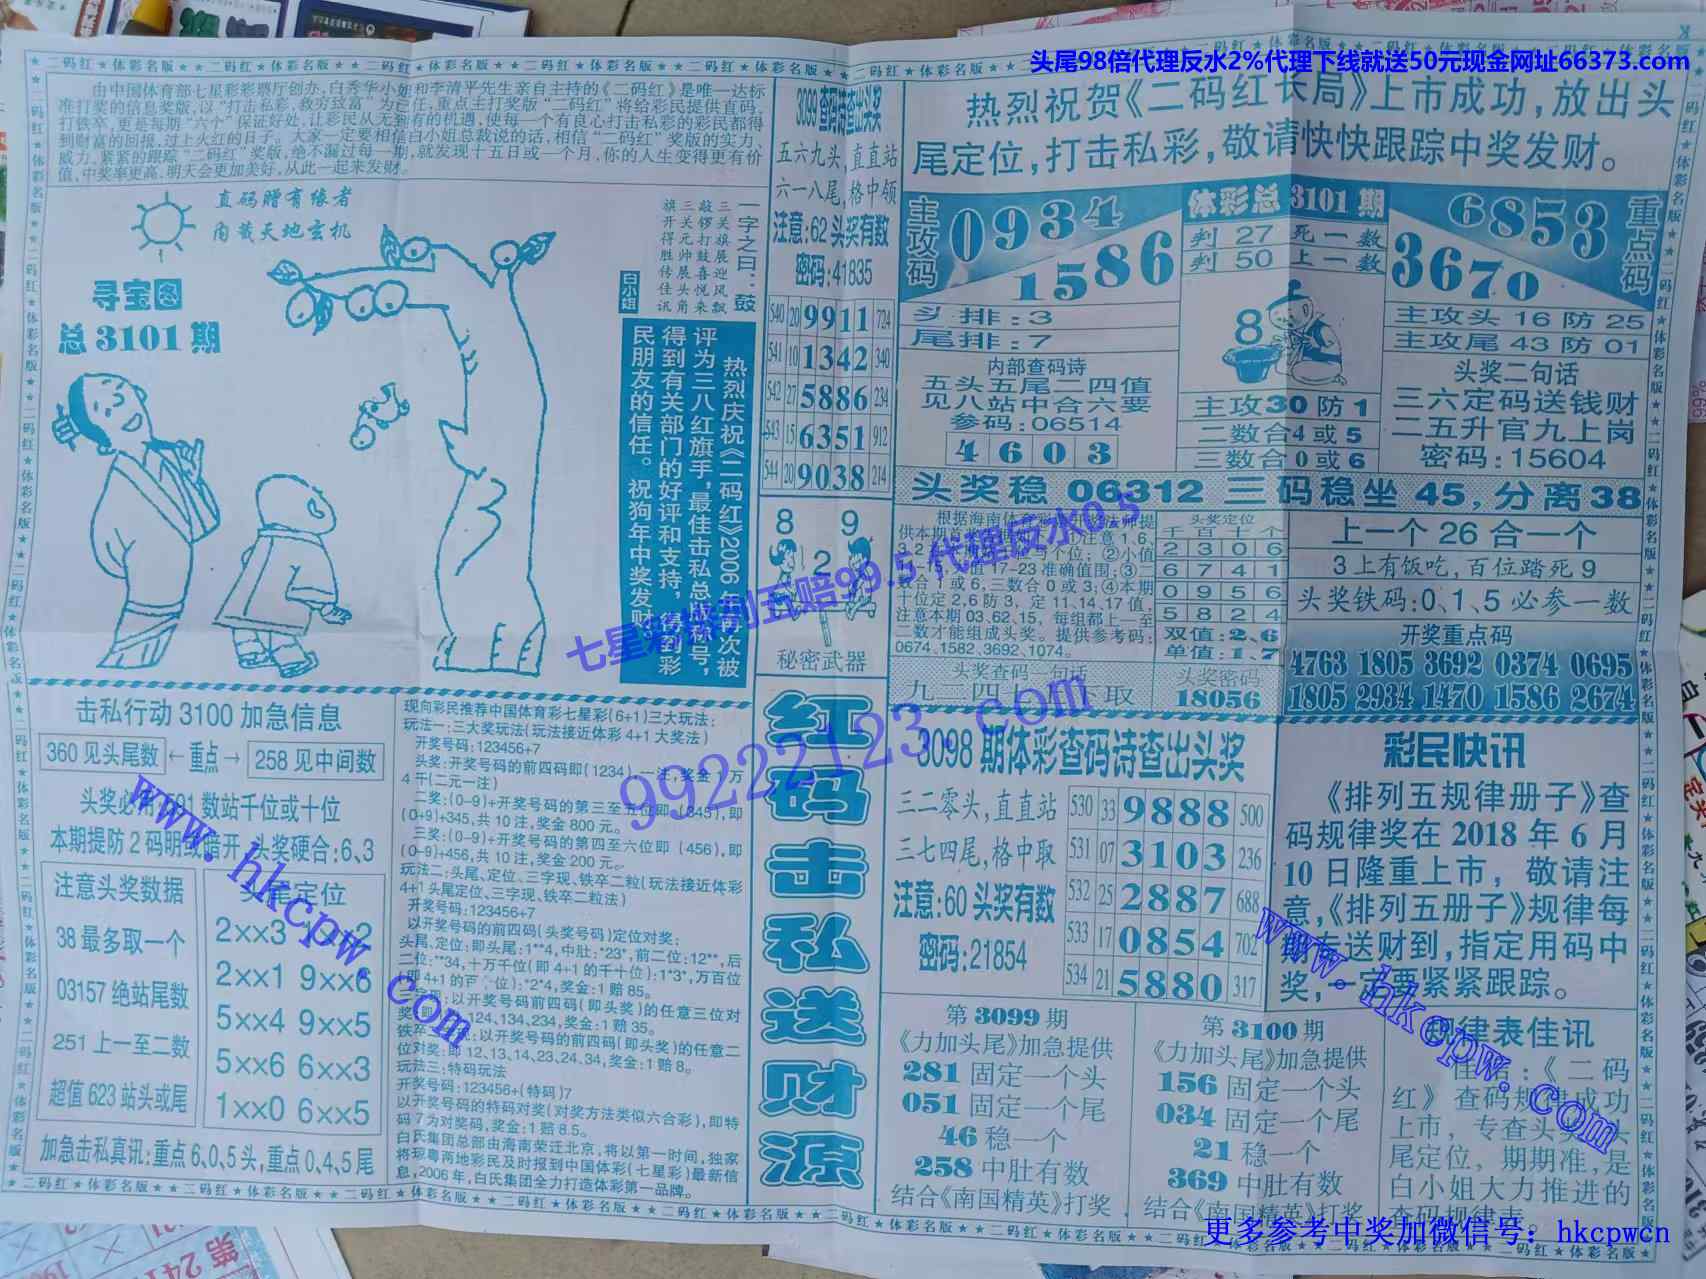 头尾98倍代理反水2%代理下线就送50元现金网址66373.com
由中国体育部七星彩彩票厅创办，白秀华小姐和李清平先生亲自主持的《二码红》是唯一达标
准打奖的信息奖版，以“打击私彩，救穷致富”为己任，重点主打奖版“二码红”将给彩民提供直码，
打铁卒，更是每期“六个”保证好处，让彩民从无到有的机遇，使每一个有良心打击私彩的彩民都得
到财富的回报，过上火红的日子。大家一定要相信白小姐总裁说的话，相信“二码红”奖版的实力、
威力，紧紧的跟踪“二码红”奖版，绝不漏过每一期，就发现十五日或一个月，你的人生变得更有价
值，中奖率更高，明天会更加美好，从此一起来发财。
直码赠有缘者
内藏天地玄机
寻宝图
总3101期
一字之曰：鼓
三关旗展迎风飘
敲锣打鼓喜悦来
三关元帅展头角
旗开得胜传佳讯
白小姐
热烈庆祝《二码红》2006年再次被
评为三八红旗手，最佳击私总裁称号，
得到有关部门的好评和支持，得到彩
民朋友的信任。祝狗年中奖发财
3099查码诗查出头奖
五六九头，直直站
六一八尾，格中领
注意：62头奖有数
密码：41835
540 20 9911 724
541 10 1342 340
542 27 5886 234
543 15 6351 912
544 20 9038 214
8 9
2
秘密武器
红码击私送财源
热烈祝贺《二码红长局》上市成功，放出头
尾定位，打击私彩，敬请快快跟踪中奖发财。
主攻码
0934
1586
体彩总3101期
判 27 死一数
判 50 上一数
6853
3670
重点码
头排：3
尾排：7
内部查码诗
五头五尾二四值
见八站中合六要
参码：06514
4 6 0 3
8
主攻30防1
二数合4或5
三数合0或6
主攻头 16 防 25
主攻尾 43 防 01
头奖二句话
三六定码送钱财
二五升官九上岗
密码：15604
头奖稳 06312 三码稳坐 45，分离38
注意本期03、62、15，每组都上一至
二数才能组成头奖。提供参考码：
0674、1582、3692、1074。
头奖定位
千百十个
2 3 0 6
6 7 4 1
0 9 5 6
5 8 2 4
双值：2、6
单值：1、7
头奖查码一句话
头奖密码
18056
上一个26合一个
3上有饭吃，百位踏死9
头奖铁码：0、1、5必参一数
开奖重点码
4763 1805 3692 0374 0695
1805 2934 1470 1586 2674
七星彩排列五赔99.5 代理反水0.5
99222123.com
击私行动3100加急信息
360见头尾数 ←重点→ 258见中间数
本期提防2码明或暗开，头奖硬合：6、3
注意头奖数据
38最多取一个
03157绝站尾数
251上一至二数
超值623站头或尾
头尾定位
2××3
2××1 9××6
5××4 9××5
5××6 6××3
1××0 6××5
加急击私真讯：重点6、0、5头，重点0、4、5尾
现向彩民推荐中国体育彩七星彩(6+1)三大玩法：
玩法一：三大奖玩法(玩法接近体彩4+1大奖法)
开奖号码：123456+7
头奖：开奖号码的前四码即(1234)一注，奖金1万
4千(二元一注)
二奖：(0-9)+开奖号码的第三至五位即(345)，即
(0-9)+345，共10注，奖金800元。
三奖：(0-9)+开奖号码的第四至六位即(456)，即
(0-9)+456，共10注，奖金200元。
玩法二：头尾、定位、三字现、铁卒二粒(玩法接近体彩
4+1头尾定位、三字现、铁卒二粒法)
开奖号码：123456+7
以开奖号码的前四码(头奖号码)定位对奖：
头尾、定位：即头尾：1**4，中肚：*23*，前二位：12**，后
二位：**34，十万千位(即4+1的千十位)：1*3*，万百位
玩法三：特码玩法
开奖号码：123456+(特码)7
以开奖号码的特码对奖(对奖方法类似六合彩)，即特
码7为对奖码，奖金：1赔8.5。
白氏集团总部由海南荣迁北京，将以第一时间，独家
将琼粤两地彩民及时报到中国体彩(七星彩)最新信
息，2006年，白氏集团全力打造体彩第一品牌。
3098期体彩查码诗查出头奖
三二零头，直直站
三七四尾，格中取
注意：60头奖有数
密码：21854
530 33 9888 500
531 07 3103 236
532 25 2887 688
533 17 0854 702
534 21 5880 317
彩民快讯
《排列五规律册子》查
码规律奖在2018年6月
10日隆重上市，敬请注
意，《排列五册子》规律每
期有送财到，指定用码中
奖，一定要紧紧跟踪。
第3099期
《力加头尾》加急提供
281固定一个头
051固定一个尾
46稳一个
258中肚有数
结合《南国精英》打奖
第3100期
《力加头尾》加急提供
156固定一个头
034固定一个尾
21稳一个
369中肚有数
结合《南国精英》打奖
规律表佳讯
佳 ：《二码
红》查码规律成功
上市，专查头奖、头
尾定位，期期准，是
白小姐大力推进的
查码规律表。
www.hkcpw.com
www.hkcpw.com
更多参考中奖加微信号：hkcpwcn